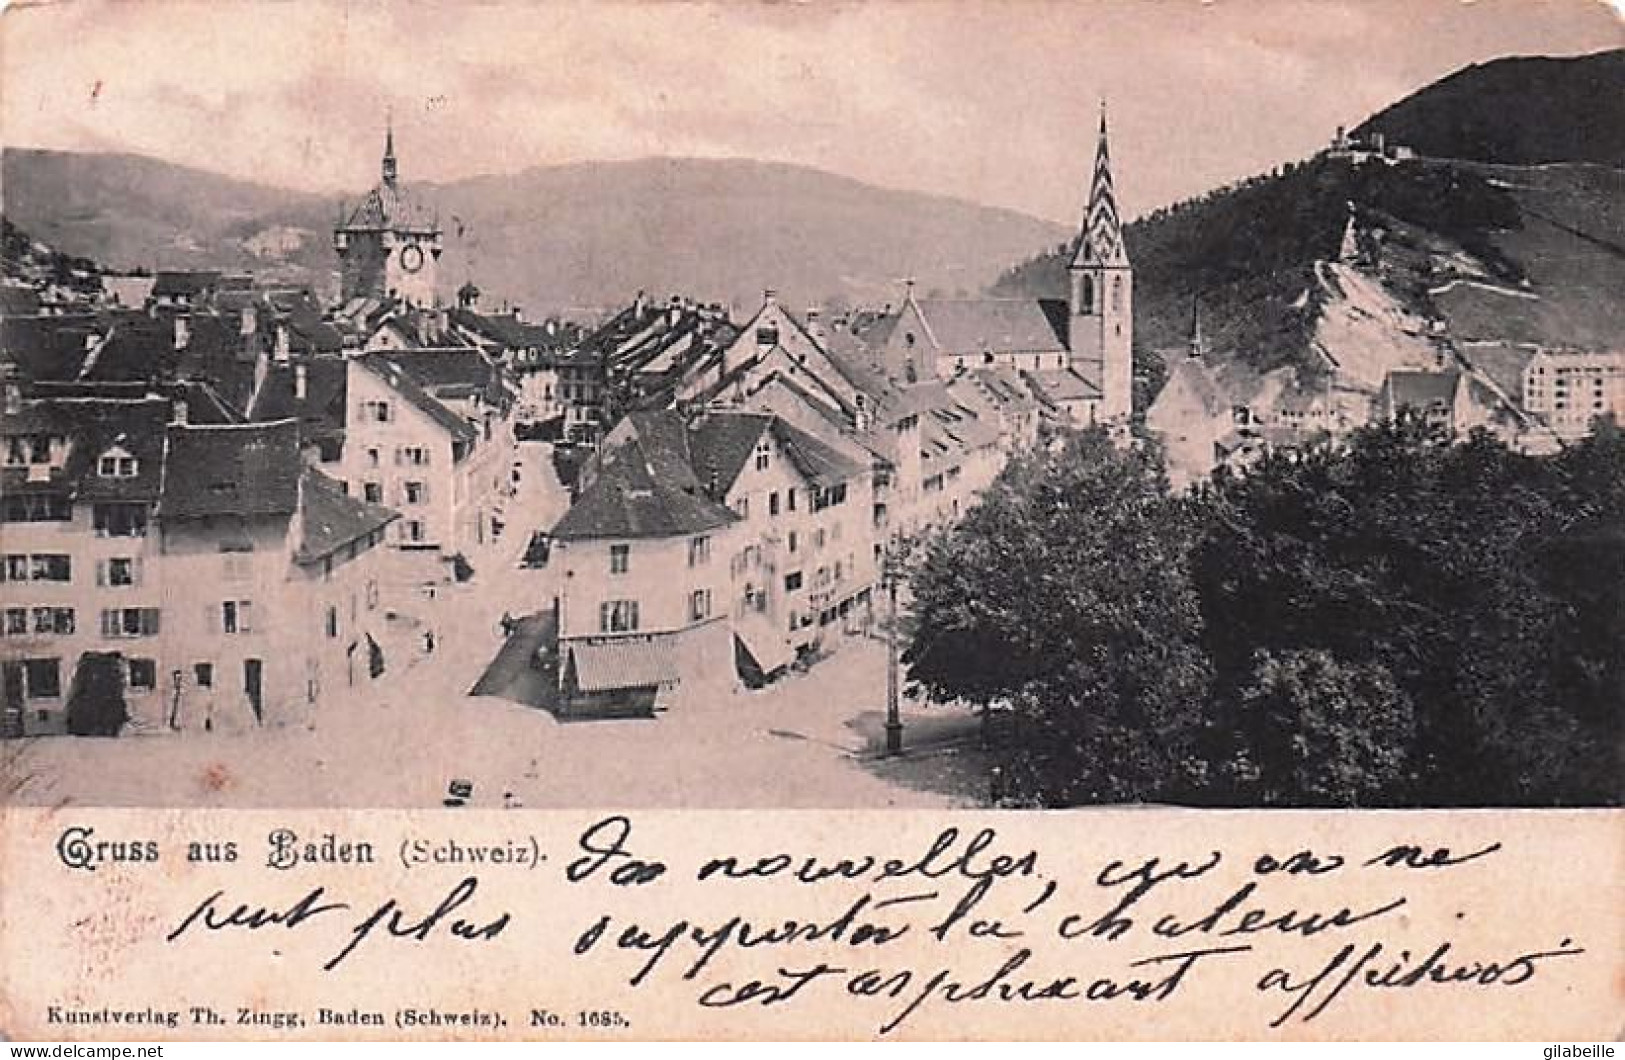 Gruss aus Baden (Schweiz).
nouvelles, qu on ne
peut plus supporter la chaleur
c'est asphixiant
Kunstverlag Th. Zingg, Baden (Schweiz). No. 1685.
www.delcampe.net
gilabeille